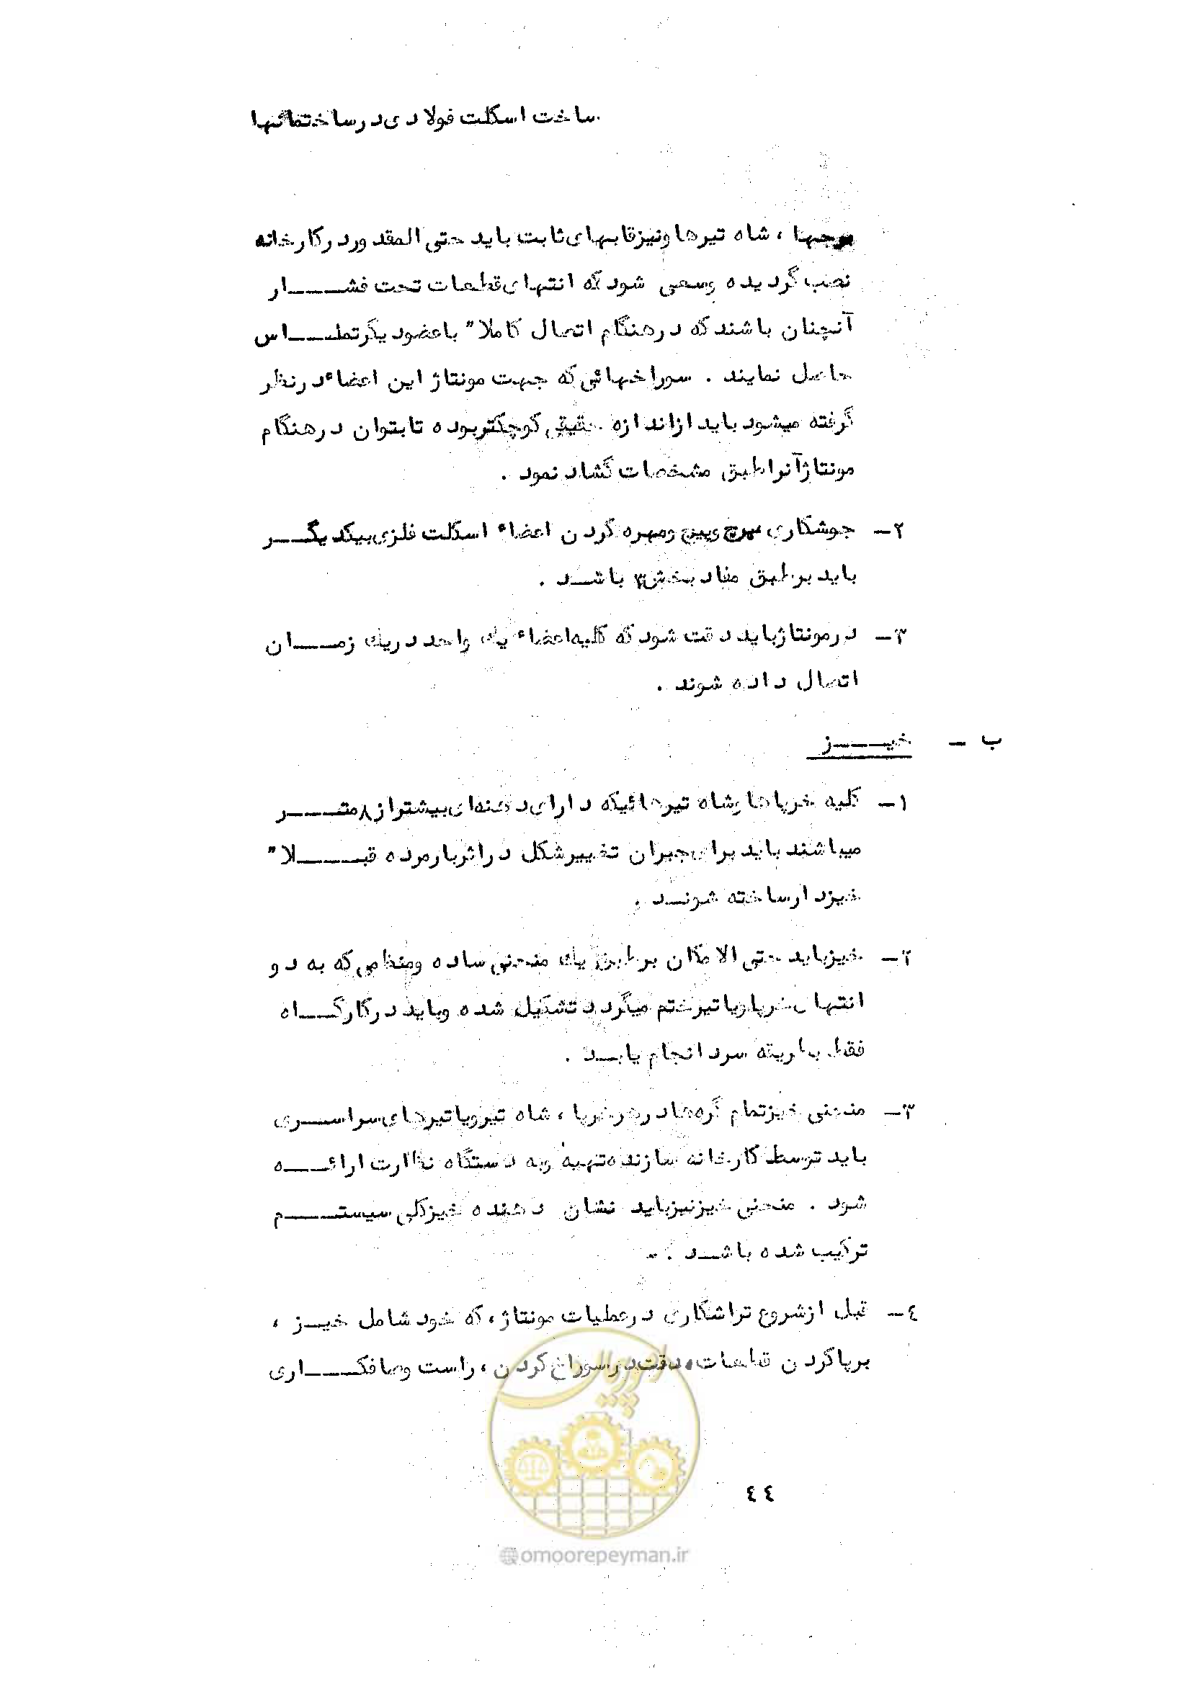 ساخت اسکلت فولادی در ساختمانها
برجها ، شاه تیرها ونیز قابهای ثابت باید حتی المقدور در کارخانه
نصب گردیده وسعی شود که انتهای قطعات تحت فشـــار
آنچنان باشند که در هنگام اتصال کاملا" با عضو دیگر تمـــاس
حاصل نمایند . سوراخهائی که جهت مونتاژ این اعضاء در نظر
گرفته میشود باید از اندازه حقیقی کوچکتر بوده تا بتوان در هنگام
مونتاژ آنرا طبق مشخصات گشاد نمود .
۲ـ جوشکاری پرچ وپیچ ومهره کردن اعضاء اسکلت فلزی بیکدیگـــر
باید بر طبق مفاد بخش ۳ باشــد .
۳ـ در مونتاژ باید دقت شود که کلیه اعضاء یك واحد در یك زمـــان
اتصال داده شوند .
ب ـ خیـــز
۱ـ کلیه خرپاها وشاه تیرهائیکه دارای دهنه‌ای بیشتر از ۸ متـــر
میباشند باید برای جبران تغییر شکل در اثر بار مرده قبـــلا"
خیزدار ساخته شونــد .
۲ـ خیز باید حتی الامکان بر طبق یك منحنی ساده ومنظمی که به دو
انتهای خرپا ویا تیر ختم میگردد تشکیل شده وباید در کارگـــاه
فقط بطریقه سرد انجام یابــد .
۳ـ منحنی خیز تمام گره‌ها در هر خرپا ، شاه تیر ویا تیرهای سراســری
باید توسط کارخانه سازنده تهیه وبه دستگاه نظارت ارائـــه
شود . منحنی خیز نیز باید نشان دهنده خیز کلی سیستـــم
ترکیب شده باشــد .ـ
٤ـ قبل از شروع تراشکاری در عملیات مونتاژ ، که خود شامل خیــز ،
برپا کردن قطعات ، دقت در سوراخ کردن ، راست وصافکـــاری
امور پیمان
٤٤
@omoorepeyman.ir